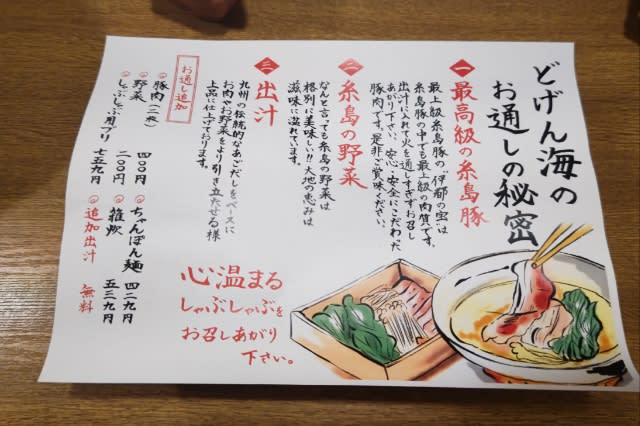 どげん海の
お通しの秘密
一 最高級の糸島豚
最上級糸島豚の“伊都の宝”は
糸島豚の中でも最上級の肉質です。
出汁に入れて火を通しすぎずお召し
あがり下さい。安心・安全にこだわった
豚肉です。是非ご賞味ください。
二 糸島の野菜
なんと言っても糸島の野菜は
格別に美味しい!!大地の恵みは
滋味に溢れています。
三 出汁
九州の伝統的なあごだしをベースに
お肉やお野菜をより引き立たせる様
上品に仕上げております。
お通し追加
豚肉(二枚) 四〇〇円
野菜 二〇〇円
しゃぶしゃぶ用ブリ 七五九円
ちゃんぽん麺 四二九円
雑炊 五三九円
追加出汁 無料
心温まる
しゃぶしゃぶを
お召しあがり
下さい。